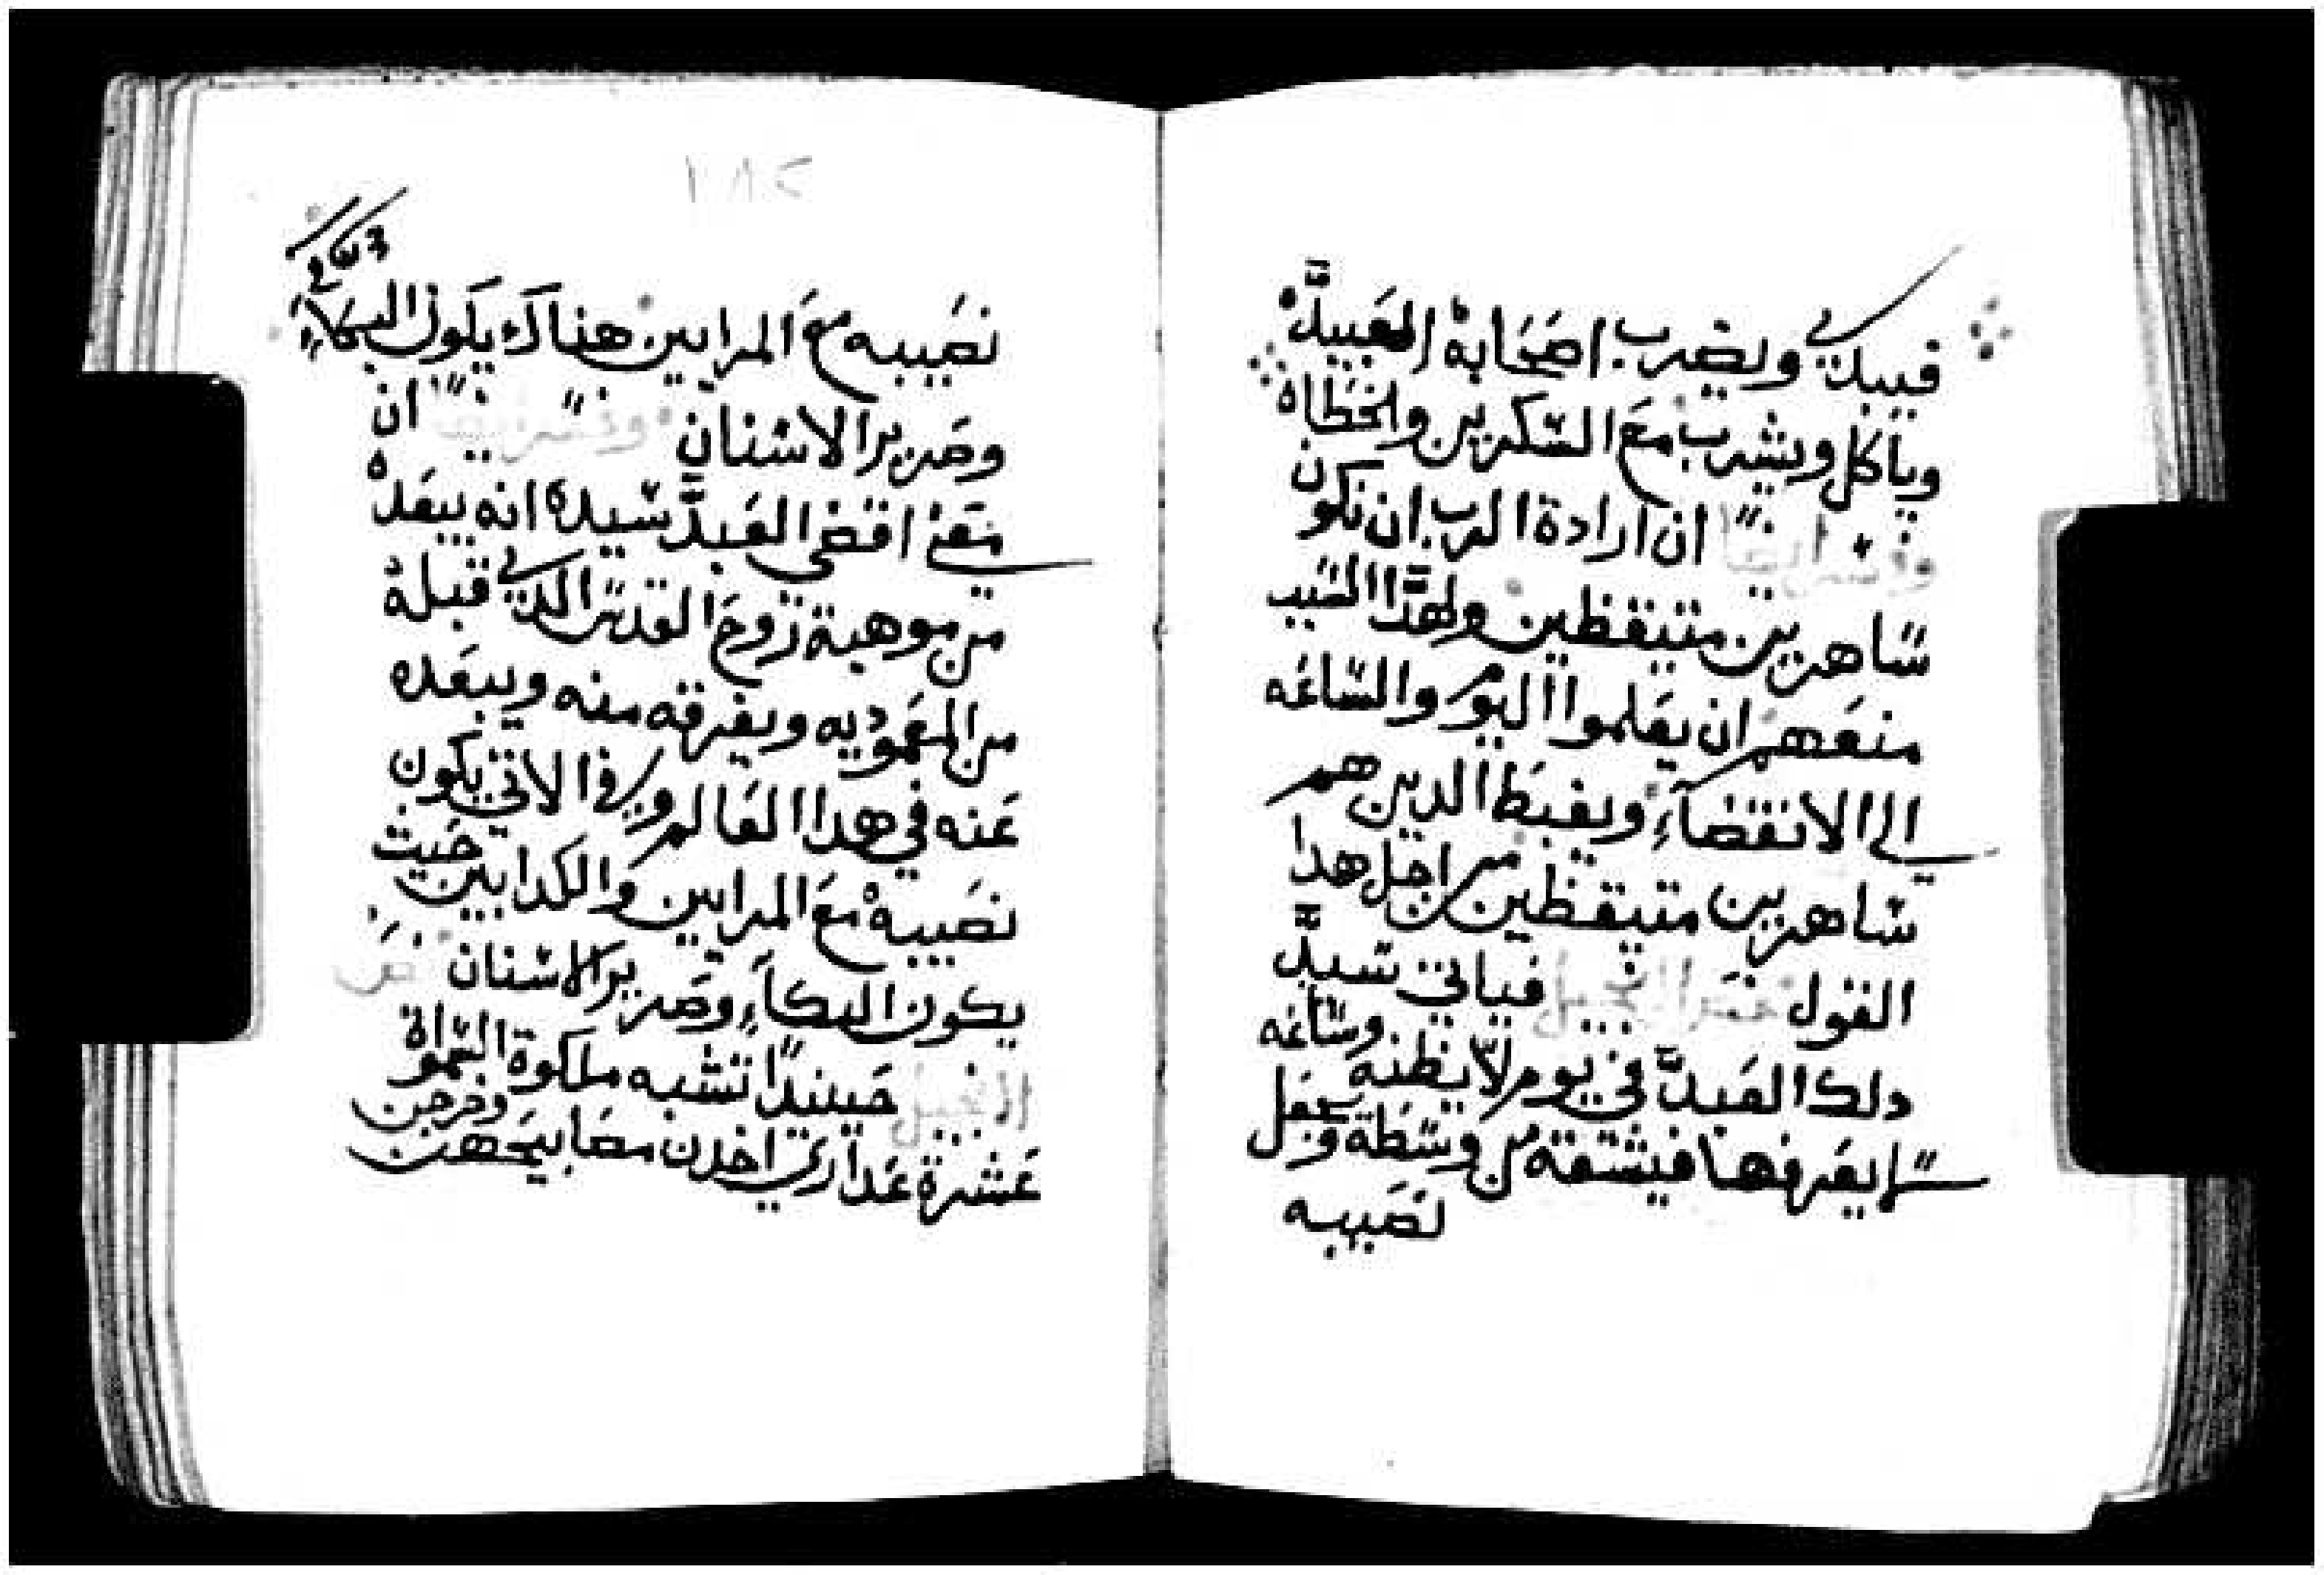 فيبدي ويضرب اصحابه العبيد
وياكل ويشرب مع السكريين والخطاه
وفسر ايضا ان ارادة الرب ان نكون
ساهرين متيقظين ولهدا السبب
منعهم ان يعلموا اليوم والساعه
الي الانقضآء ويغبط الدين هم
ساهرين متيقظين من اجل هدا
القول فياتي سيد
دلك العبد في يوم لا يظنه وساعه
لا يعرفها فيشقه من وسطه ويجعل
نصيبه
١٨٢
نصيبه مع المرايين هناك يكون البكاء
وصرير الاسنان وفسر ايضا ان
معني اقضي العبد سيده انه يبعده
من موهبة روح القدس الدي قبله
من المعموديه ويفرقه منه ويبعده
عنه في هدا العالم وفي الاتي يكون
نصيبه مع المرايين والكدابين حيت
يكون البكاء وصرير الاسنان
الانجيل حينيدا تشبه ملكوة السمواة
عشرة عداري اخدن مصابيحهن وخرجن